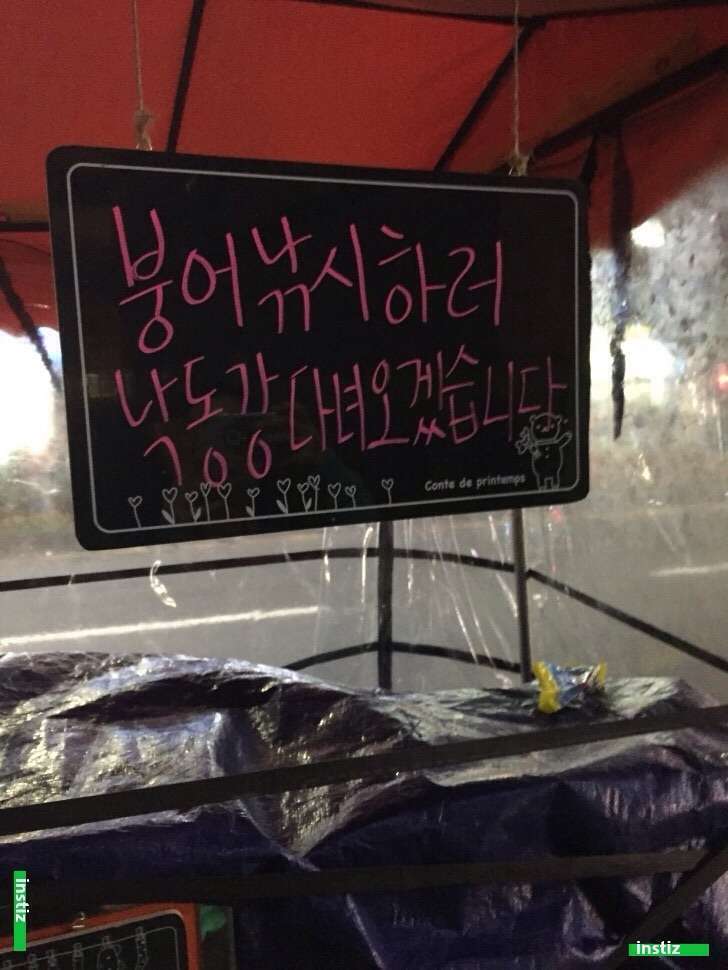 붕어낚시하러
낙동강 다녀오겠습니다
Conte de printemps
instiz
instiz